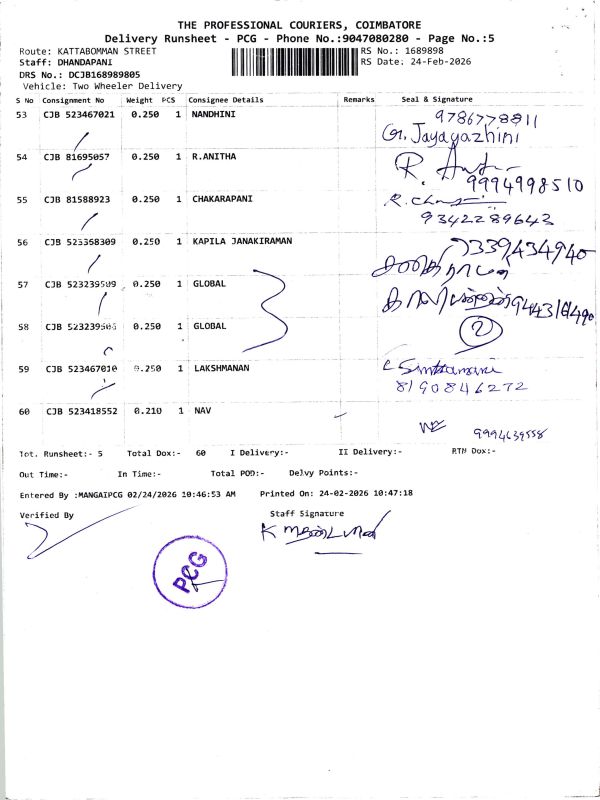 THE PROFESSIONAL COURIERS, COIMBATORE
Delivery Runsheet - PCG - Phone No.:9047080280 - Page No.:5
Route: KATTABOMMAN STREET
RS No.: 1689898
Staff: DHANDAPANI
RS Date: 24-Feb-2026
DRS No.: DCJB168989805
Vehicle: Two Wheeler Delivery
S No Consignment No Weight PCS Consignee Details Remarks Seal & Signature
53 CJB 523467021 0.250 1 NANDHINI 9786778811
G. Jayayazhini
54 CJB 81695057 0.250 1 R.ANITHA R.
9994998510
55 CJB 81588923 0.250 1 CHAKARAPANI R.
9342289643
56 CJB 523358309 0.250 1 KAPILA JANAKIRAMAN 7339434940
57 CJB 523239509 0.250 1 GLOBAL
58 CJB 0.250 1 GLOBAL 2
59 CJB 523467010 0.250 1 LAKSHMANAN
8190846272
60 CJB 523418552 0.210 1 NAV
9994639558
Tot. Runsheet:- 5 Total Dox:- 60 I Delivery:- II Delivery:- RTN Dox:-
Out Time:- In Time:- Total POD:- Delvy Points:-
Entered By :MANGAIPCG 02/24/2026 10:46:53 AM Printed On: 24-02-2026 10:47:18
Verified By Staff Signature
K
PCG